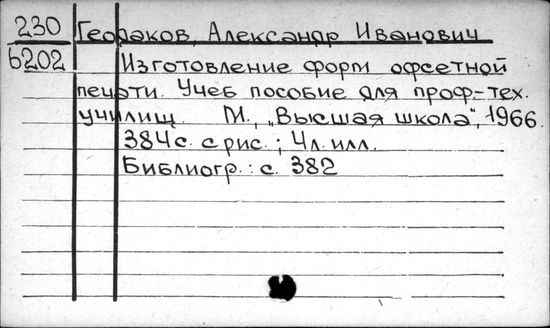 230 Геораков, Александр Иванович
6202 Изготовление форм офсетной
печати. Учеб пособие для проф-тех.
училищ. М., „Высшая школа", 1966.
384с. с рис.; 4л. илл.
Библиогр.: с. 382